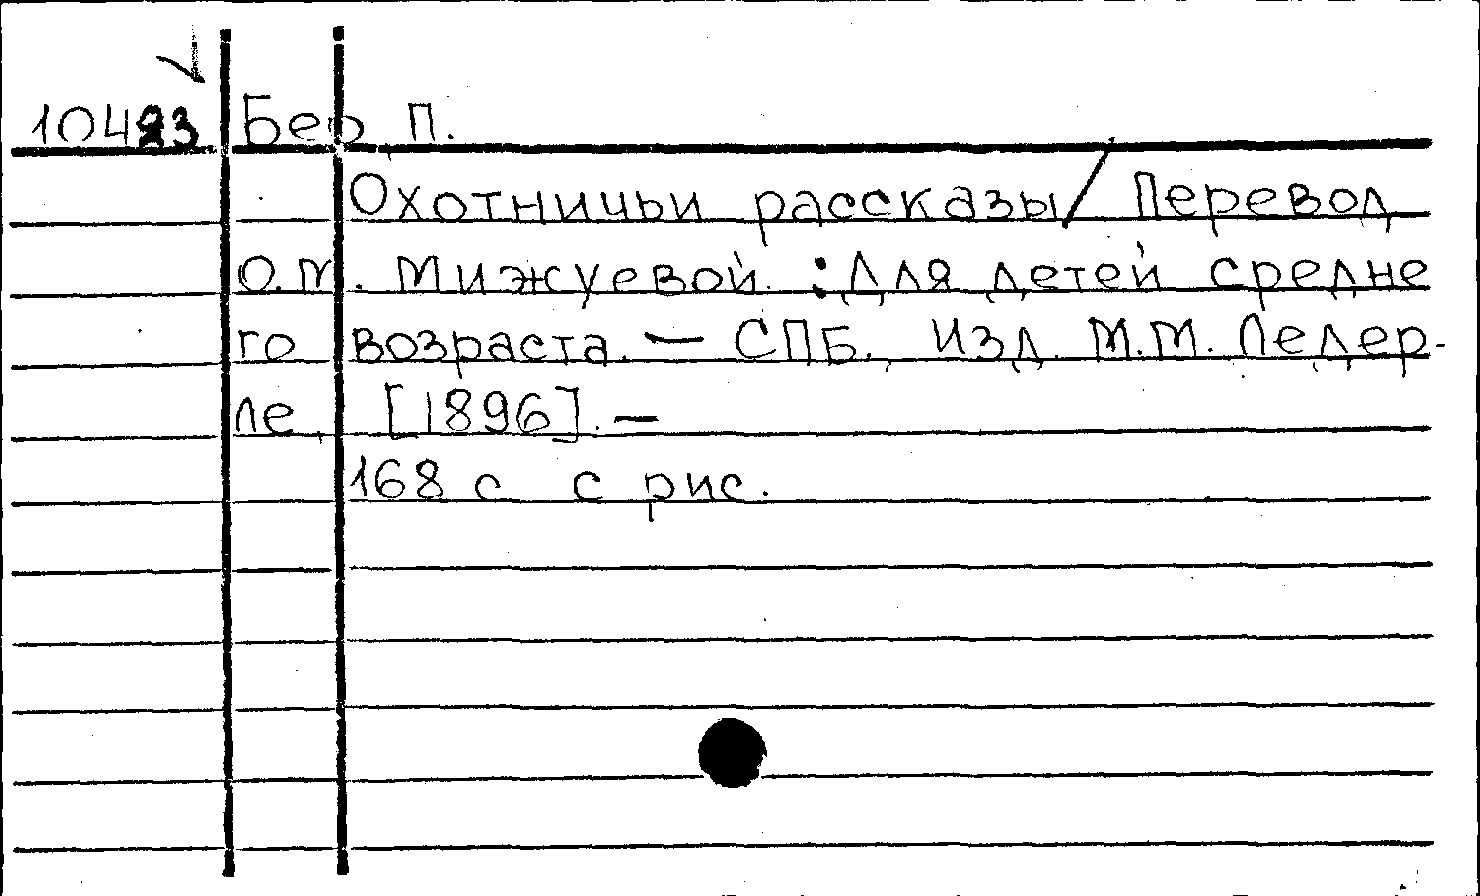 10423 Бер, П.
Охотничьи рассказы / Перевод
О.М. Мижуевой : Для детей средне
го возраста. — СПБ., Изд. М.М. Ледер-
ле, [1896]. —
168 с. с рис.